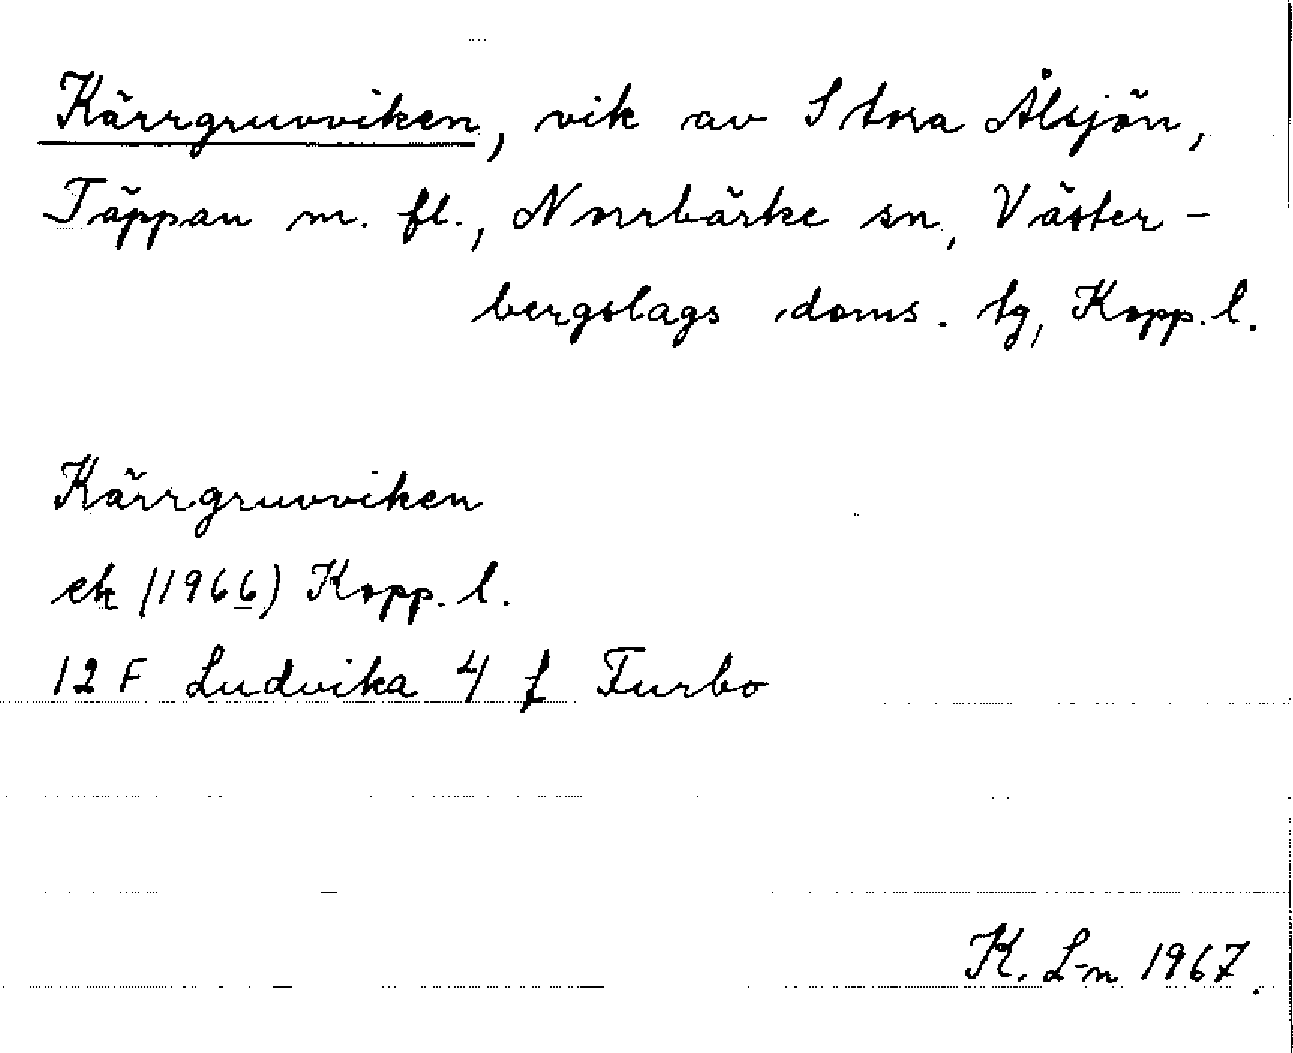 Kärrgruvviken, vik av Stora Ålsjön,
Täppan m. fl., Norrbärke sn, Väster-
bergslags doms. tg, Kopp. l.
Kärrgruvviken
ek (1966) Kopp. l.
12 F Ludvika 4 f Turbo
K. L-n 1967.